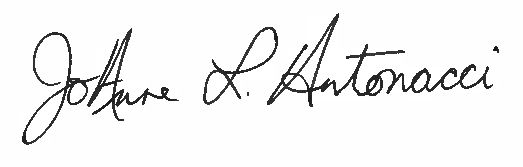 JoAnne L. Antonacci